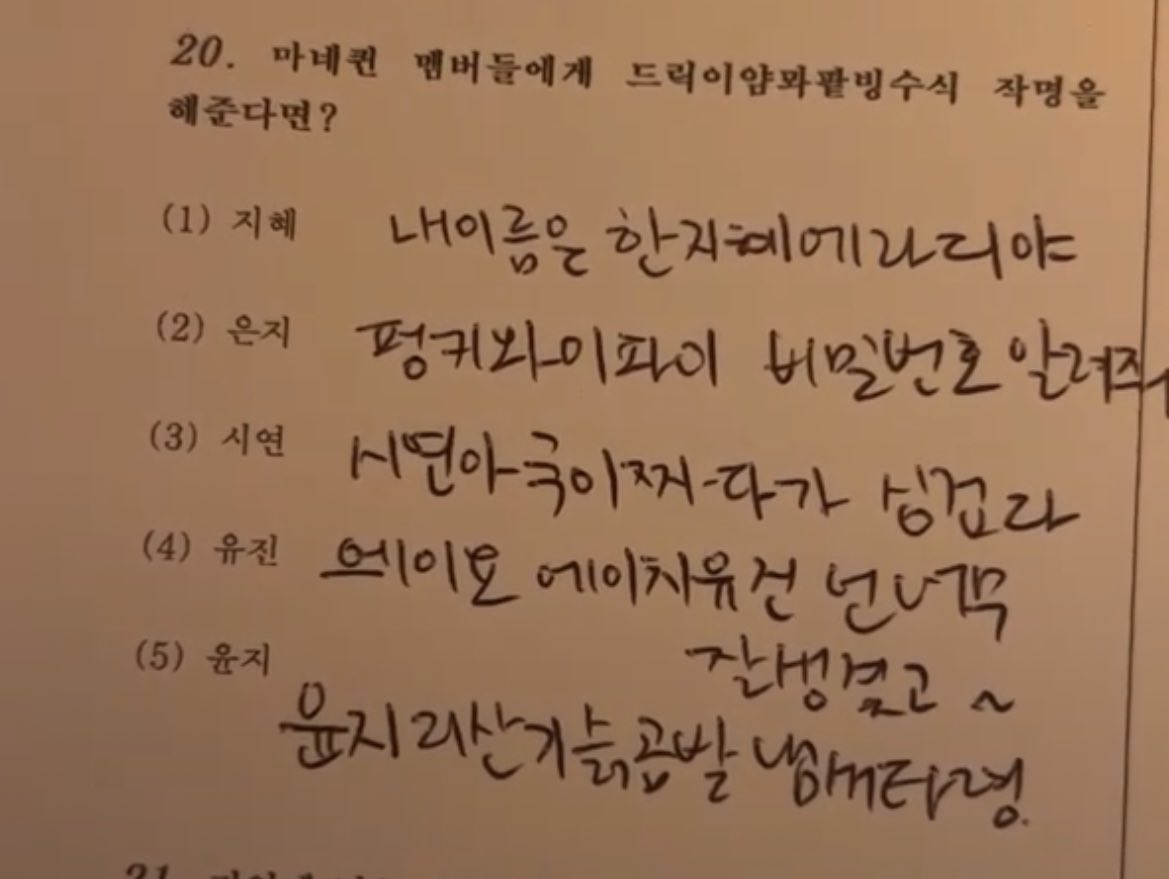 20. 마네퀸 멤버들에게 드릭이얌꽈팥빙수식 작명을
해준다면?
(1) 지혜 내이름은 한지혜에라디야
(2) 은지 펑키와이파이 비밀번호 알려줘
(3) 시연 시연아국이짜다가 싱겁라
(4) 유진 에이요 에이치유진 넌너무
잘생겼고 ~
(5) 윤지 윤지리산기슭곰발 냄새타령.